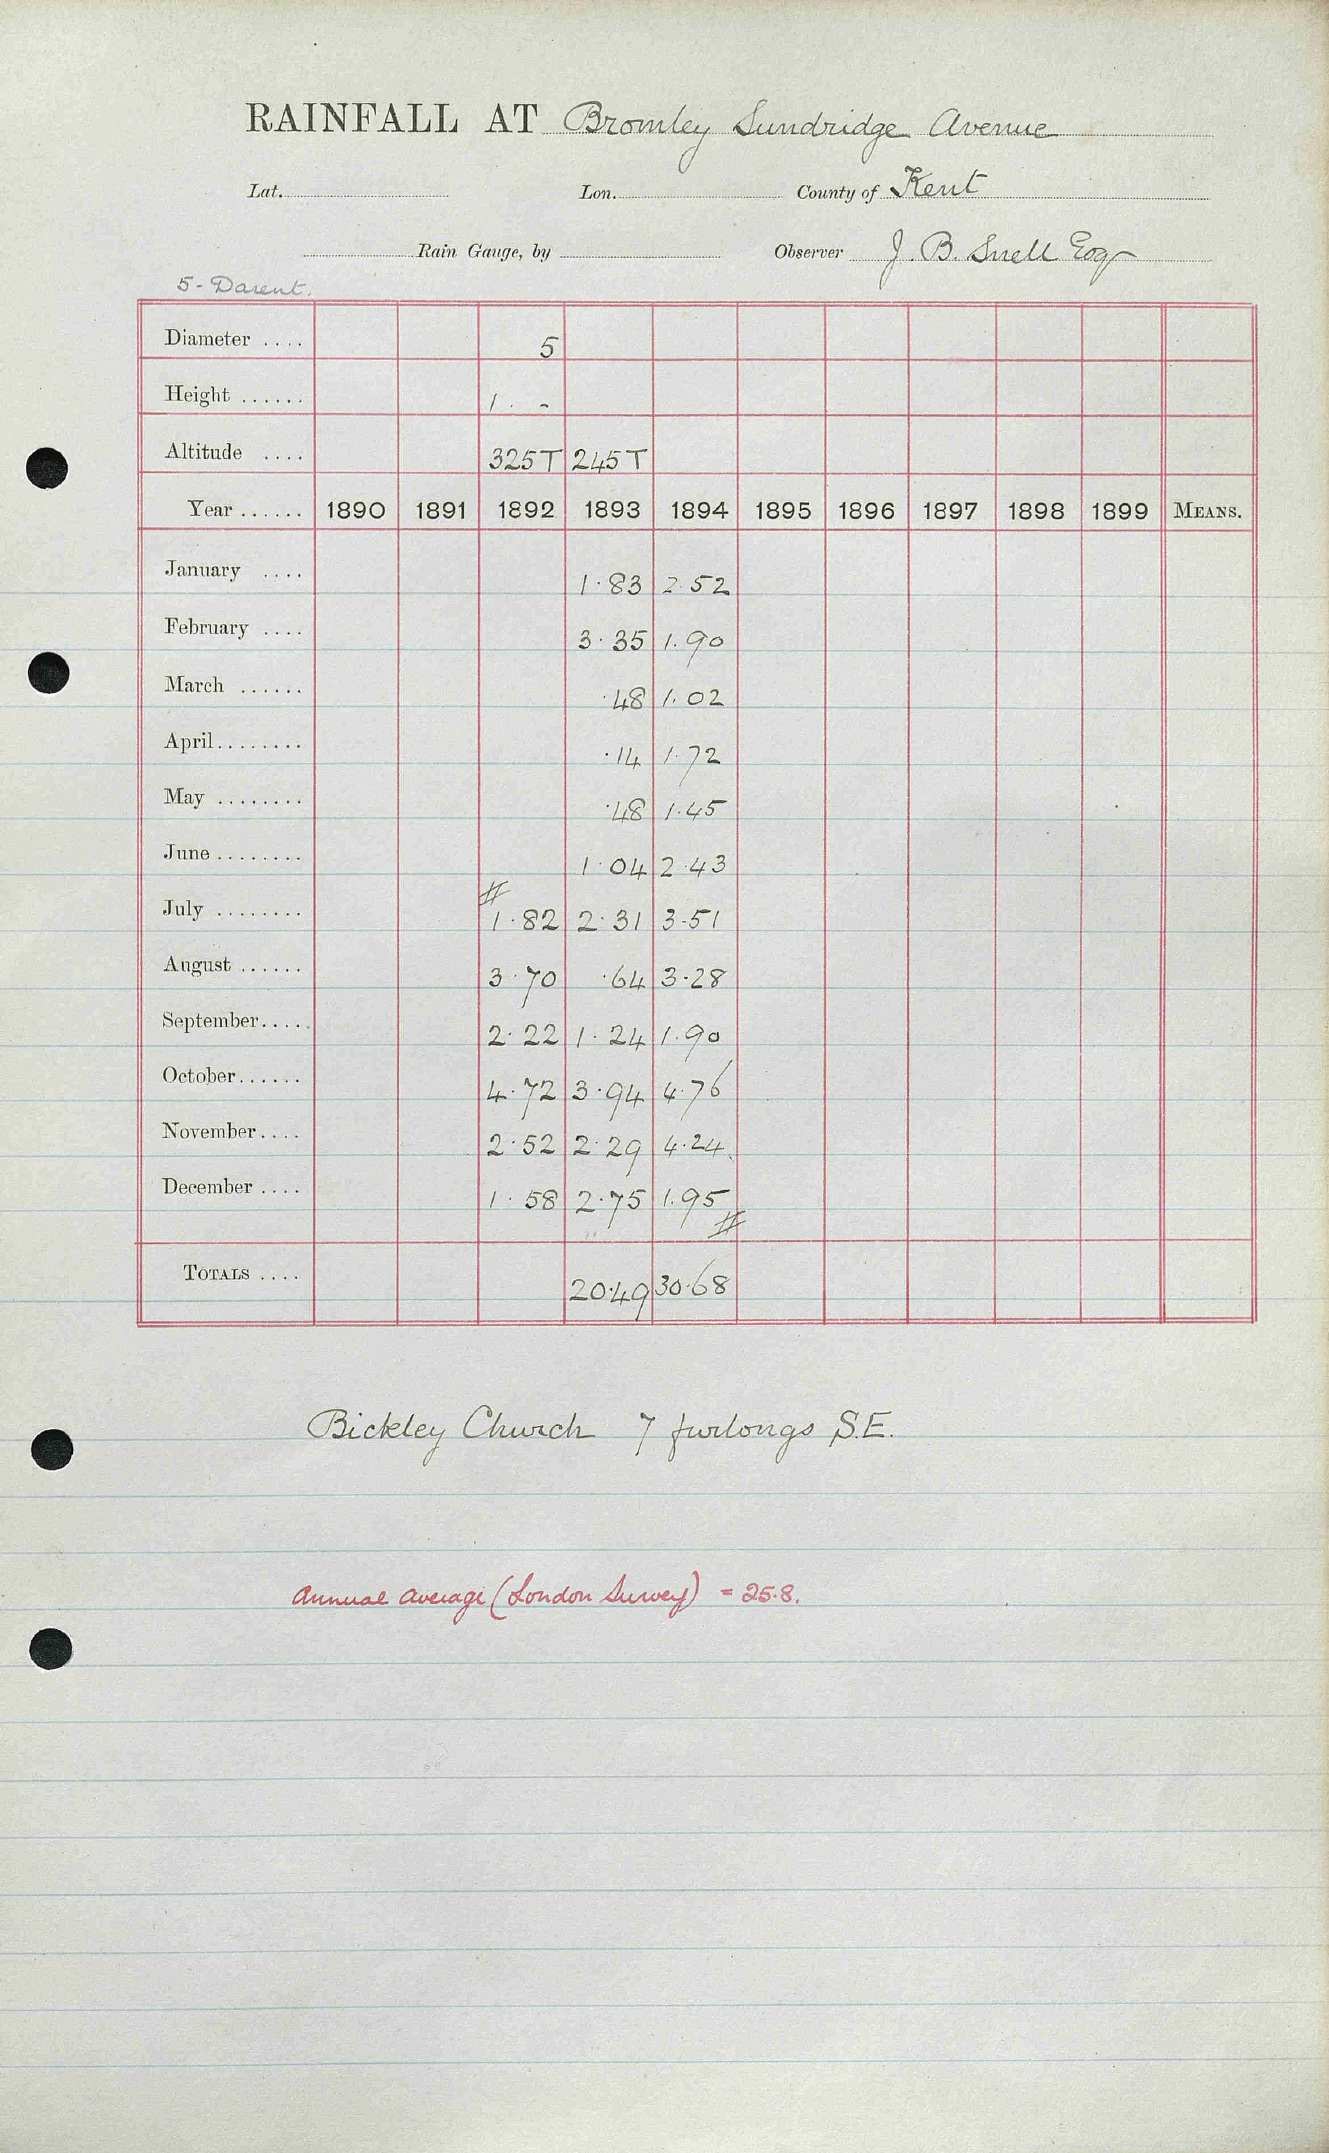 RAINFALL AT Bromley Sundridge Avenue
Lat. Lon. County of Kent
Rain Gauge, by Observer J. B. Snell Esq
5 - Darent.
Diameter .... 5
Height ...... 1 . -
Altitude .... 325T 245T
Year ...... 1890 1891 1892 1893 1894 1895 1896 1897 1898 1899 MEANS.
January .... 1.83 2.52
February .... 3.35 1.90
March ...... .48 1.02
April ........ .14 1.72
May ........ .48 1.45
June ........ 1.04 2.43
#
July ........ 1.82 2.31 3.51
August ...... 3.70 .64 3.28
September..... 2.22 1.24 1.90
October...... 4.72 3.94 4.76
November.... 2.52 2.29 4.24
December .... 1.58 2.75 1.95
#
TOTALS .... 20.49 30.68
Bickley Church 7 furlongs S.E.
Annual Average (London Survey) = 25.8.